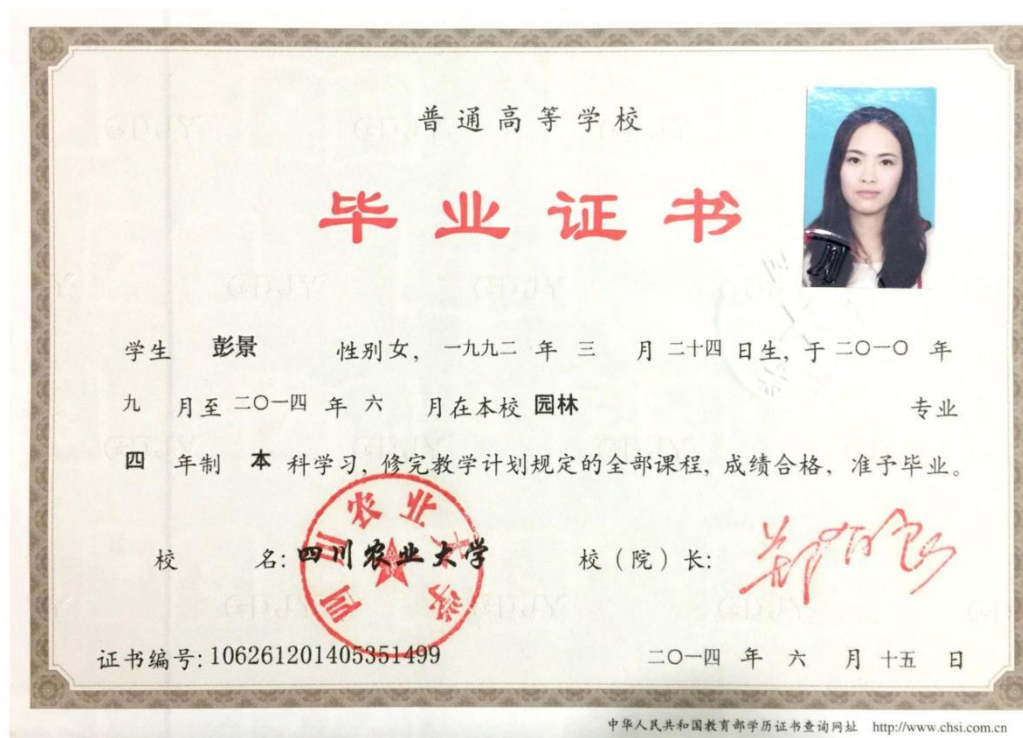 普通高等学校
毕业证书
学生 彭景 性别女，一九九二 年 三 月 二十四 日生，于 二〇一〇 年
九 月至 二〇一四 年 六 月在本校 园林 专业
四 年制 本 科学习，修完教学计划规定的全部课程，成绩合格，准予毕业。
四川农业大学
校 名：四川农业大学 校（院）长：
证书编号：106261201405351499 二〇一四 年 六 月 十五 日
中华人民共和国教育部学历证书查询网址 http://www.chsi.com.cn